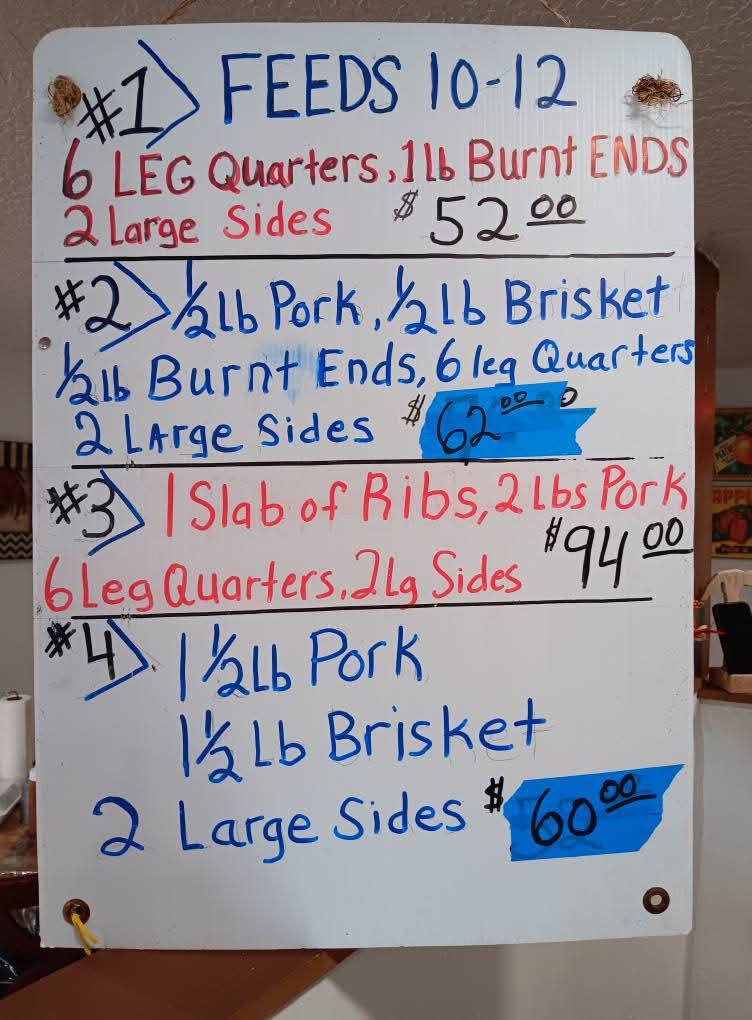 #1 FEEDS 10-12
6 LEG Quarters, 1 lb Burnt ENDS
2 Large Sides $52.00
#2 1/2 lb Pork, 1/2 lb Brisket
1/2 lb Burnt Ends, 6 leg Quarters
2 LArge Sides $62.00
#3 1 Slab of Ribs, 2 Lbs Pork
6 Leg Quarters, 2 Lg Sides $94.00
#4 1 1/2 Lb Pork
1 1/2 Lb Brisket
2 Large Sides $60.00